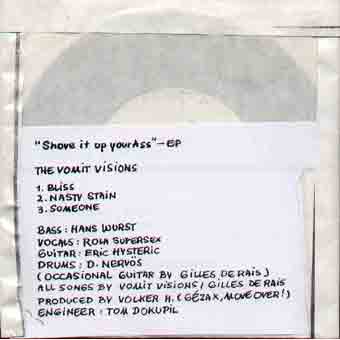 "Shove it up yourAss"-EP
THE VOMIT VISIONS
1. BLISS
2. NASTY STAIN
3. SOMEONE
BASS : HANS WURST
VOCALS : ROLA SUPERSEX
GUITAR : ERIC HYSTERIC
DRUMS : D. NERVÖS
(OCCASIONAL GUITAR BY GILLES DE RAIS)
ALL SONGS BY VOMIT VISIONS / GILLES DE RAIS
PRODUCED BY VOLKER H. (GÉZA X, MOVE OVER!)
ENGINEER : TOM DOKUPIL